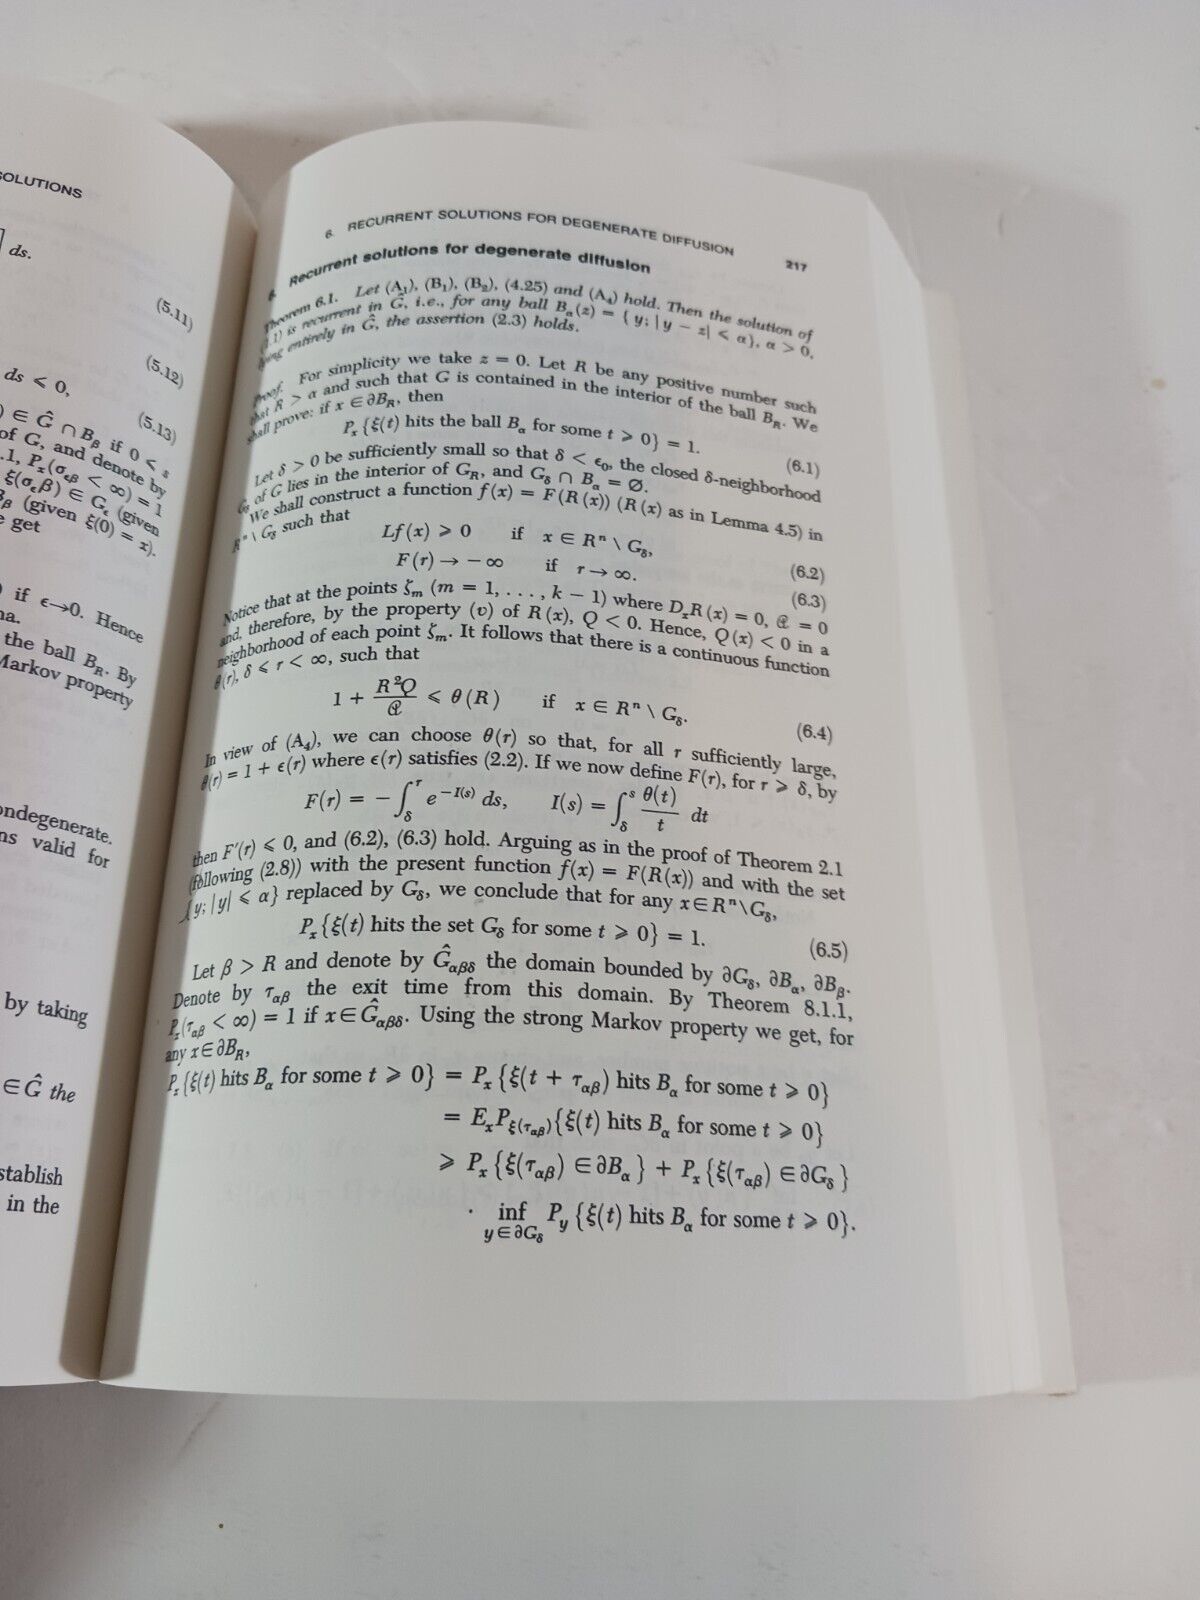 SOLUTIONS
] ds.
(5.11)
(5.12)
ds ⩽ 0,
(5.13)
) ∈ Ĝ ∩ B_β if 0 < s
of G, and denote by
.1, P_x(σ_εβ < ∞) = 1
ξ(σ_εβ) ∈ G_ε (given
B_β (given ξ(0) = x).
get
) if ε→0. Hence
the ball B_R. By
Markov property
ondegenerate.
ns valid for
by taking
∈ Ĝ the
stablish
in the
6. RECURRENT SOLUTIONS FOR DEGENERATE DIFFUSION 217
6. Recurrent solutions for degenerate diffusion
Theorem 6.1. Let (A₁), (B₁), (B₂), (4.25) and (A₄) hold. Then the solution of
(1.1) is recurrent in Ĝ, i.e., for any ball B_α(z) = {y; |y − z| < α}, α > 0,
lying entirely in Ĝ, the assertion (2.3) holds.
Proof. For simplicity we take z = 0. Let R be any positive number such
that R > α and such that G is contained in the interior of the ball B_R. We
shall prove: if x ∈ ∂B_R, then
P_x{ξ(t) hits the ball B_α for some t ⩾ 0} = 1. (6.1)
Let δ > 0 be sufficiently small so that δ < ε₀, the closed δ-neighborhood
G_δ of G lies in the interior of G_R, and G_δ ∩ B_α = Ø.
We shall construct a function f(x) = F(R(x)) (R(x) as in Lemma 4.5) in
Rⁿ \ G_δ such that
Lf(x) ⩾ 0 if x ∈ Rⁿ \ G_δ, (6.2)
F(r) → −∞ if r → ∞. (6.3)
Notice that at the points ζ_m (m = 1, . . . , k − 1) where D_xR(x) = 0, 𝒜 = 0
and, therefore, by the property (v) of R(x), Q < 0. Hence, Q(x) < 0 in a
neighborhood of each point ζ_m. It follows that there is a continuous function
θ(r), δ ⩽ r < ∞, such that
1 + R²Q/𝒜 ⩽ θ(R) if x ∈ Rⁿ \ G_δ. (6.4)
In view of (A₄), we can choose θ(r) so that, for all r sufficiently large,
θ(r) = 1 + ε(r) where ε(r) satisfies (2.2). If we now define F(r), for r ⩾ δ, by
F(r) = −∫_δ^r e^{−I(s)} ds, I(s) = ∫_δ^s θ(t)/t dt
then F′(r) ⩽ 0, and (6.2), (6.3) hold. Arguing as in the proof of Theorem 2.1
(following (2.8)) with the present function f(x) = F(R(x)) and with the set
{y; |y| ⩽ α} replaced by G_δ, we conclude that for any x∈Rⁿ\G_δ,
P_x{ξ(t) hits the set G_δ for some t ⩾ 0} = 1. (6.5)
Let β > R and denote by Ĝ_αβδ the domain bounded by ∂G_δ, ∂B_α, ∂B_β.
Denote by τ_αβ the exit time from this domain. By Theorem 8.1.1,
P_x(τ_αβ < ∞) = 1 if x∈Ĝ_αβδ. Using the strong Markov property we get, for
any x∈∂B_R,
P_x{ξ(t) hits B_α for some t ⩾ 0} = P_x{ξ(t + τ_αβ) hits B_α for some t ⩾ 0}
= E_xP_ξ(τ_αβ){ξ(t) hits B_α for some t ⩾ 0}
⩾ P_x{ξ(τ_αβ) ∈ ∂B_α} + P_x{ξ(τ_αβ) ∈ ∂G_δ}
· inf_{y∈∂G_δ} P_y{ξ(t) hits B_α for some t ⩾ 0}.